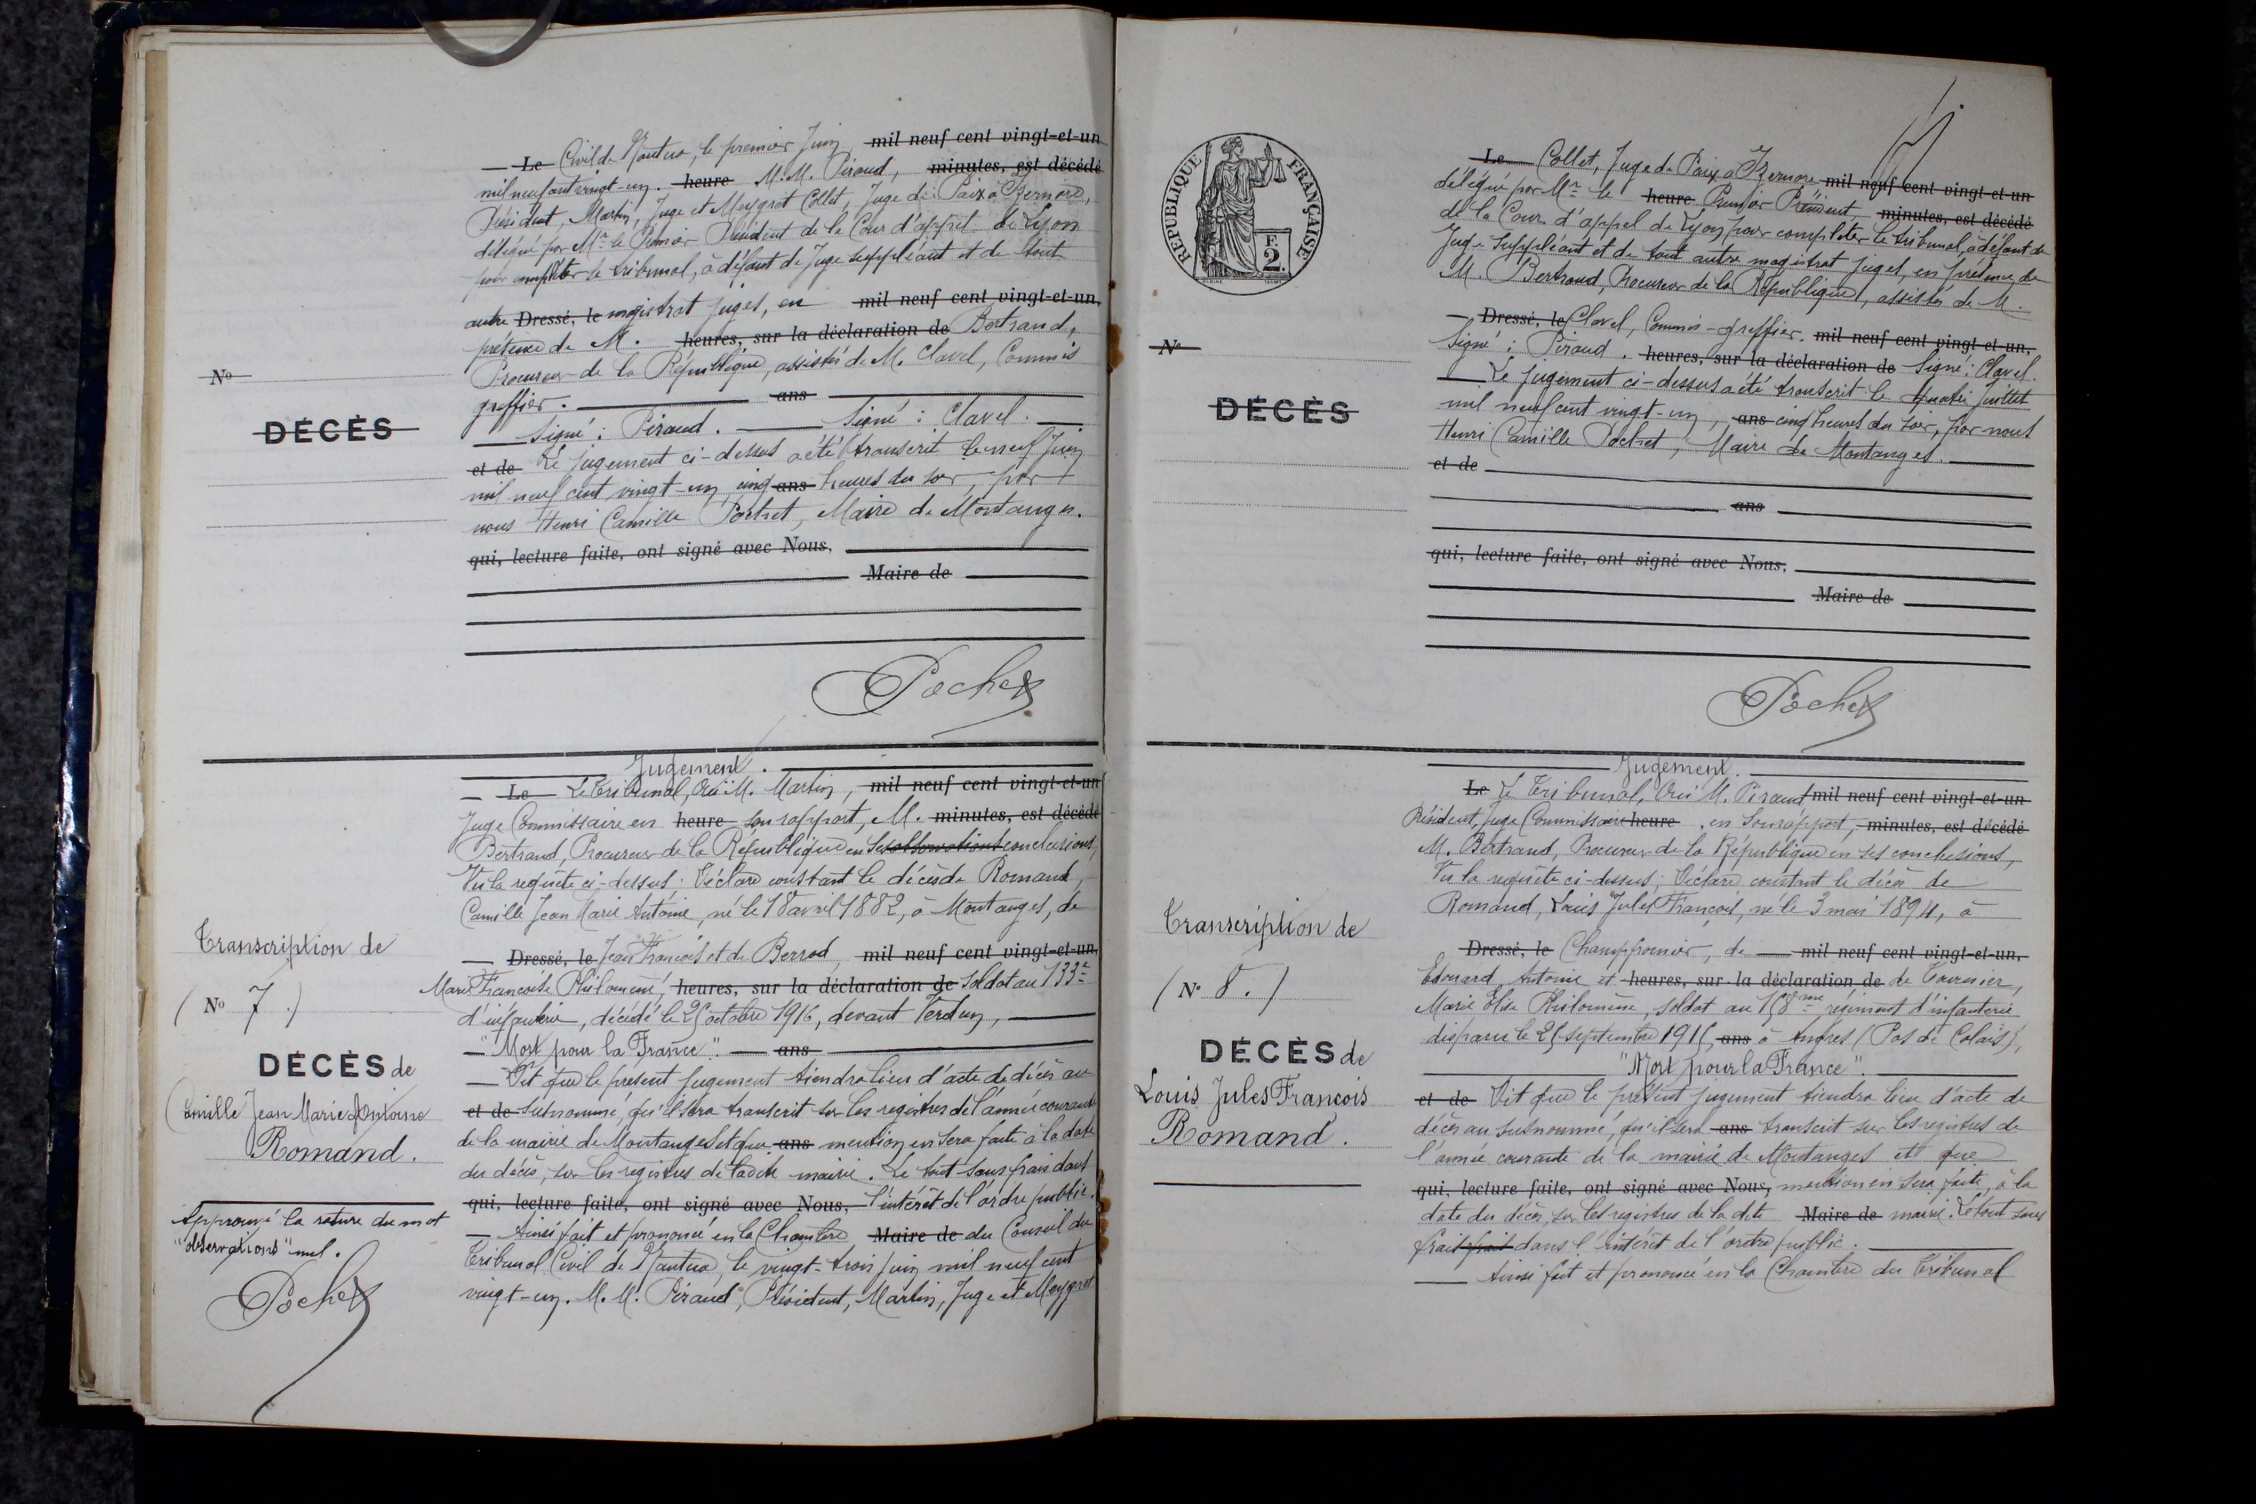 Le Civil de Nantua, le premier Juin mil neuf cent vingt-et-un
mil neuf cent vingt-un. heure M.M. Piraud, minutes, est décédé
Président, Martin, Juge et Meygret Collet, Juge de Paix à Izernore,
délégué par Mr le Premier Président de la Cour d'appel de Lyon
pour compléter le tribunal, à défaut de Juge suppléant et de tout
autre Dressé, le magistrat juges, en mil neuf cent vingt-et-un,
présence de M. heures, sur la déclaration de Bertrand,
Procureur de la République, assistés de M. Clavel, Commis
No
greffier. ans
DÉCÈS
Signé : Piraud. Signé : Clavel.
et de Le jugement ci-dessus a été transcrit le neuf Juin
mil neuf cent vingt-un, cinq ans heures du soir, par
nous Henri Camille Pochet, Maire de Montanges.
qui, lecture faite, ont signé avec Nous,
Maire de
Pochet
Jugement.
Le Le Tribunal, Ouï M. Martin, mil neuf cent vingt-et-un
Juge Commissaire en heure son rapport, M. minutes, est décédé
Bertrand, Procureur de la République en ses observations conclusions,
Vu la requête ci-dessus ; Déclare constant le décès de Romand,
Camille Jean Marie Antoine, né le 18 avril 1882, à Montanges, de
Transcription de
Dressé, le Jean François et de Berrod, mil neuf cent vingt-et-un,
Marie Françoise Philomène, heures, sur la déclaration de soldat au 133e
(No 7.)
d'infanterie, décédé le 25 octobre 1916, devant Verdun,
"Mort pour la France". ans
DÉCÈS de
Camille Jean Marie Antoine
Romand.
Dit que le présent jugement tiendra lieu d'acte de décès au
et de susnommé, qu'il sera transcrit sur les registres de l'année courante
de la mairie de Montanges et que ans mention en sera faite à la date
du décès, sur les registres de ladite mairie. Le tout sans frais dans
qui, lecture faite, ont signé avec Nous, l'intérêt de l'ordre public.
Approuvé la rature du mot
"observations" nul.
Pochet
Ainsi fait et prononcé en la Chambre Maire de du Conseil du
Tribunal Civil de Nantua, le vingt-trois juin mil neuf cent
vingt-un. M.M. Piraud, Président, Martin, Juge et Meygret
REPUBLIQUE FRANÇAISE
F.
2.
Le Collet, Juge de Paix à Izernore mil neuf cent vingt-et-un
délégué par Mr le heure Premier Président, minutes, est décédé
de la Cour d'appel de Lyon pour compléter le tribunal, à défaut de
Juge suppléant et de tout autre magistrat juges, en présence de
M. Bertrand, Procureur de la République, assistés de M.
Dressé, le Clavel, Commis-greffier. mil neuf cent vingt-et-un,
No
Signé : Piraud. heures, sur la déclaration de Signé : Clavel.
DÉCÈS
Le jugement ci-dessus a été transcrit le quatre juillet
mil neuf cent vingt-un, ans cinq heures du soir, par nous
Henri Camille Pochet, Maire de Montanges.
et de
ans
qui, lecture faite, ont signé avec Nous,
Maire de
Pochet
Jugement.
Le Le Tribunal, Ouï M. Piraud mil neuf cent vingt-et-un
Président, Juge Commissaire heure en son rapport, minutes, est décédé
M. Bertrand, Procureur de la République en ses conclusions,
Vu la requête ci-dessus ; Déclare constant le décès de
Romand, Louis Jules François, né le 3 mai 1894, à
Transcription de
Dressé, le Champfromier, de mil neuf cent vingt-et-un,
Edouard Antoine et heures, sur la déclaration de de Tournier,
(No 8.)
Marie Elise Philomène, soldat au 158me régiment d'infanterie
disparu le 25 septembre 1915 ans à Angres (Pas de Calais),
"Mort pour la France".
DÉCÈS de
Louis Jules François
Romand.
et de Dit que le présent jugement tiendra lieu d'acte de
décès au susnommé, qu'il sera ans transcrit sur les registres de
l'année courante de la mairie de Montanges et que
qui, lecture faite, ont signé avec Nous, mention en sera faite, à la
date du décès, sur les registres de la dite Maire de mairie. Le tout sans
frais frais dans l'intérêt de l'ordre public.
Ainsi fait et prononcé en la Chambre du Tribunal